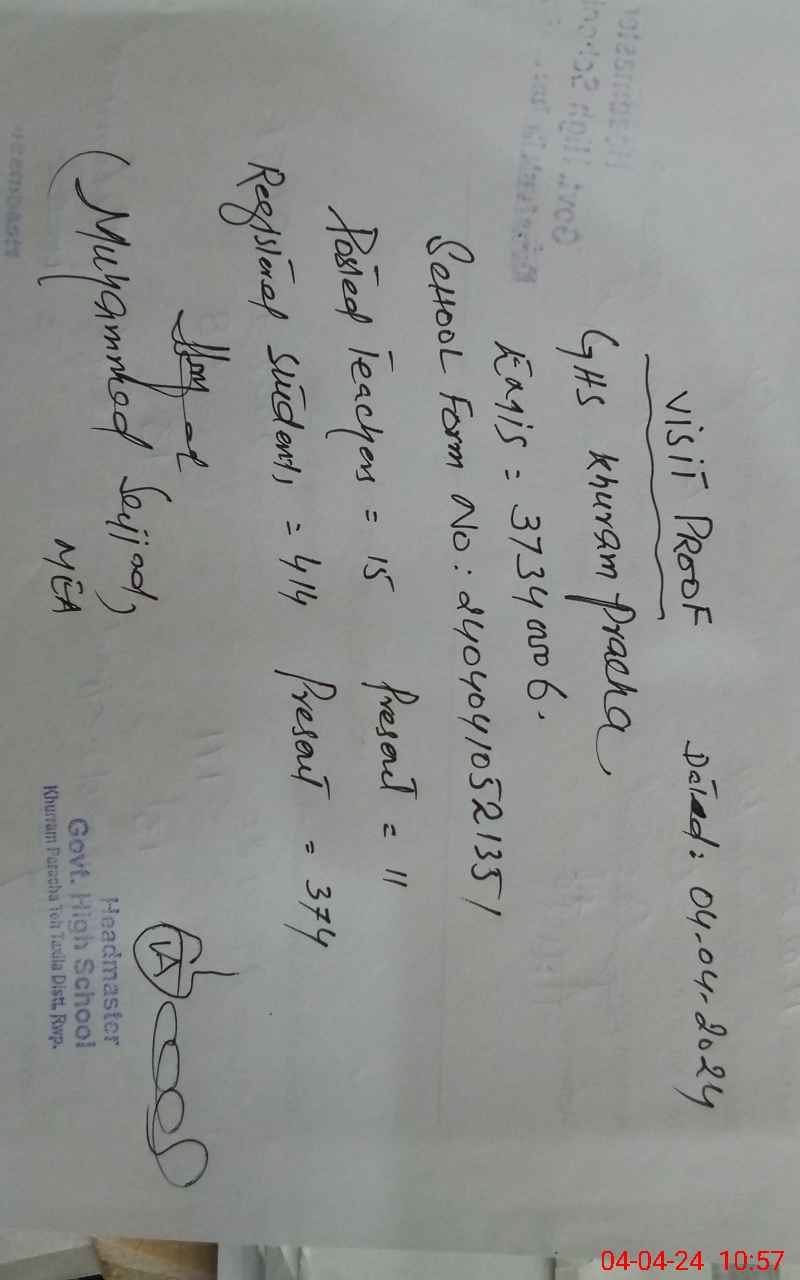 VISIT PROOF Dated: 04-04-2024
GHS Khuram Pracha
EMIS = 37340006.
SCHOOL Form No: 24040410521351
Posted Teachers = 15 Present = 11
Registered Students = 414 Present = 374
(Muhammad Sajjad)
MEA
Headmaster
Govt. High School
Khurram Paracha Teh Taxila Distt. Rwp.
04-04-24 10:57